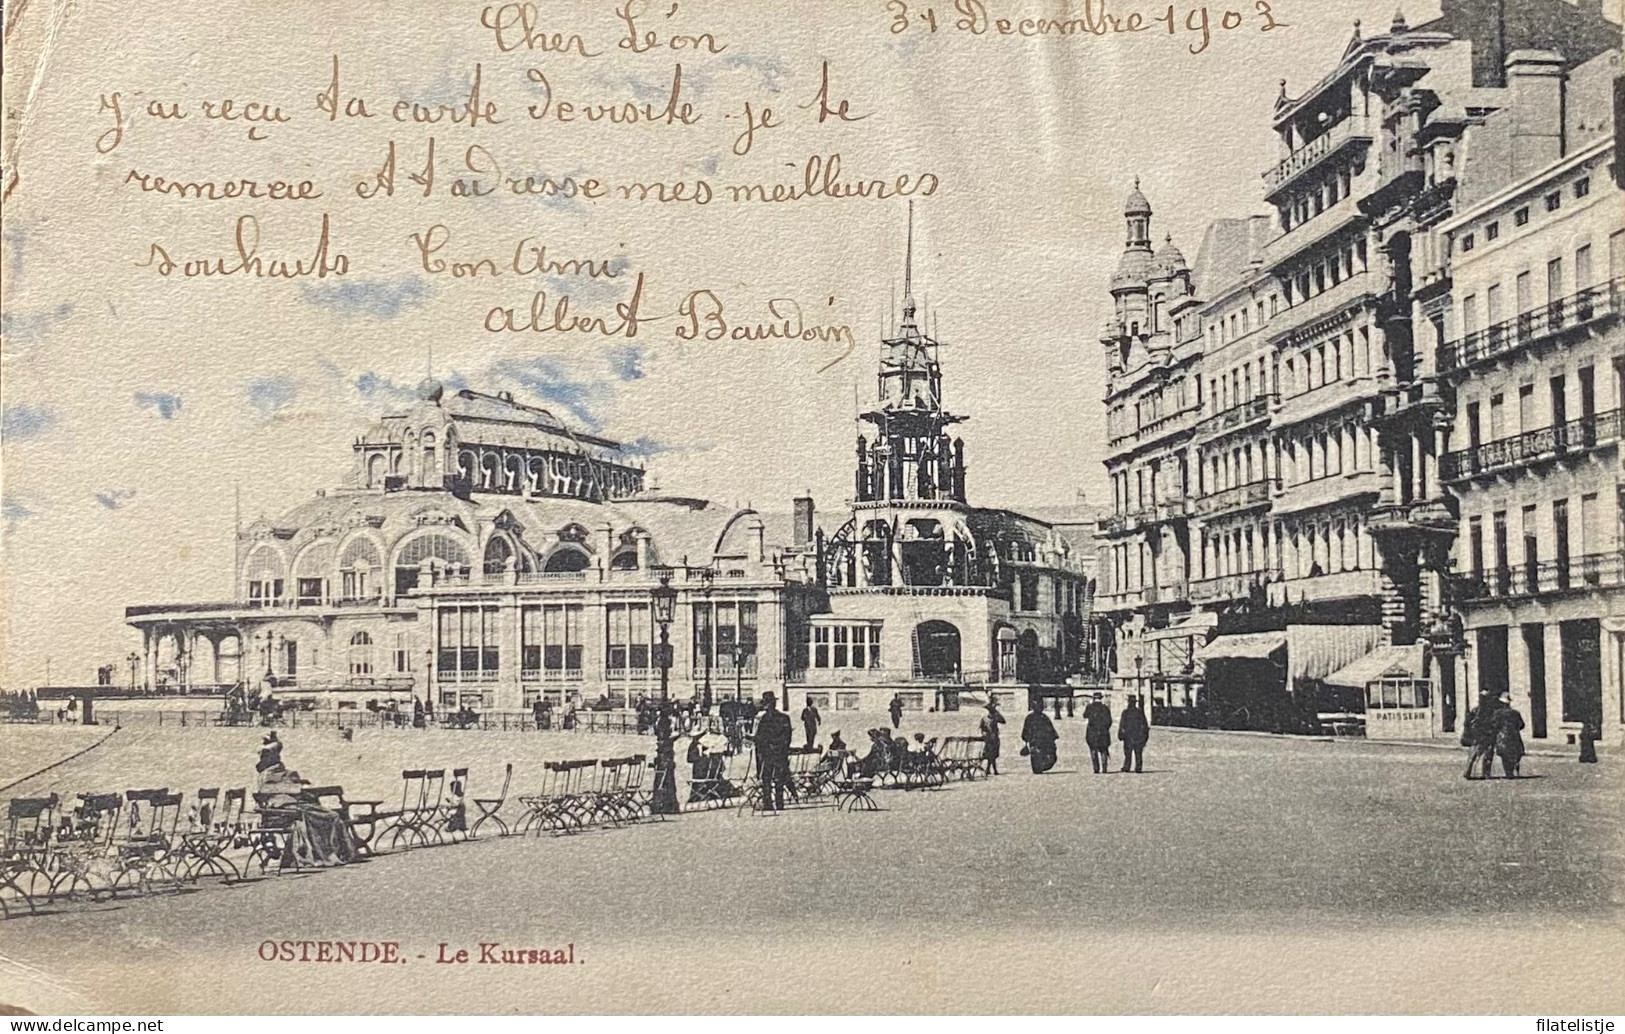 31 Decembre 1903
Cher Léon
j'ai reçu ta carte de visite je te
remercie et t'adresse mes meilleures
souhaits Ton Ami
Albert Baudoin
PATISSERIE
OSTENDE. - Le Kursaal.
filatelistje